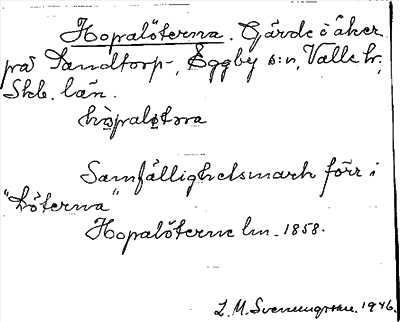 Hopalöterna. Gärde i åker
på Sandtorp, Eggby s:n, Valle hr,
Skb. län.
hòpaløtɐra
Samfällighetsmark förr i
"Löterna"
Hopalöterne lm. 1858.
L. M. Svenungsson. 1946.